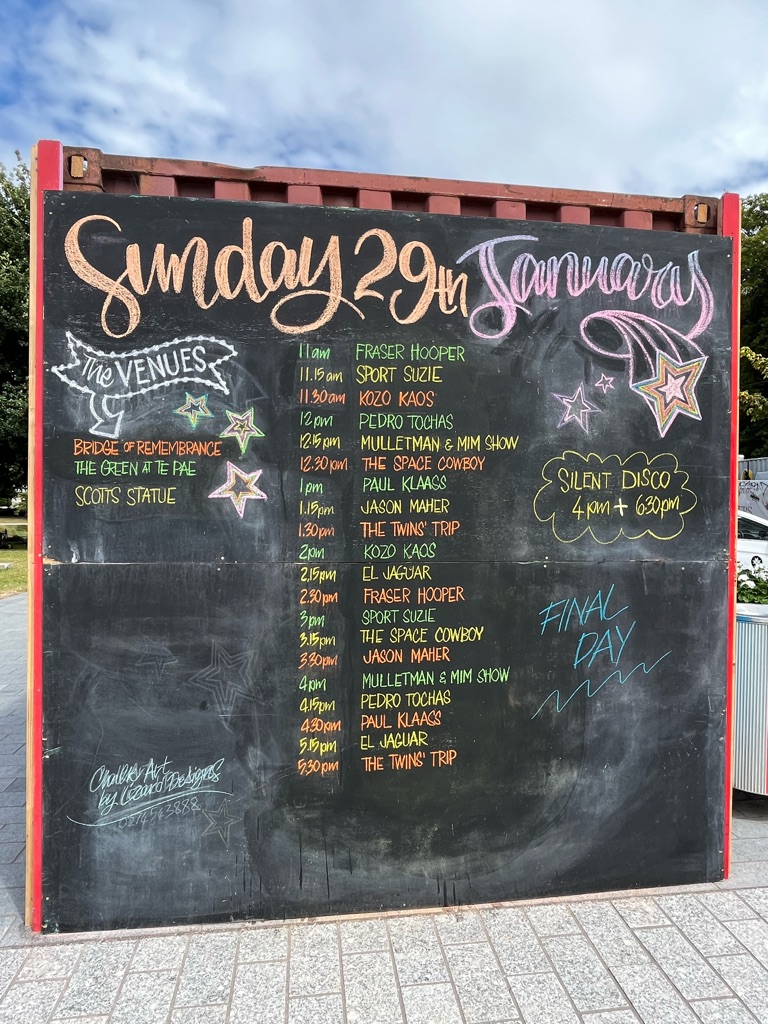 Sunday 29th January
The VENUES
BRIDGE OF REMEMBRANCE
THE GREEN AT TE PAE
SCOTTS STATUE
11am FRASER HOOPER
11.15am SPORT SUZIE
11.30am KOZO KAOS
12pm PEDRO TOCHAS
12.15pm MULLETMAN & MIM SHOW
12.30pm THE SPACE COWBOY
1pm PAUL KLAASS
1.15pm JASON MAHER
1.30pm THE TWINS' TRIP
2pm KOZO KAOS
2.15pm EL JAGUAR
2.30pm FRASER HOOPER
3pm SPORT SUZIE
3.15pm THE SPACE COWBOY
3.30pm JASON MAHER
4pm MULLETMAN & MIM SHOW
4.15pm PEDRO TOCHAS
4.30pm PAUL KLAASS
5.15pm EL JAGUAR
5.30pm THE TWINS' TRIP
SILENT DISCO
4pm + 6.30pm
FINAL
DAY
Chalky Art
by Lizard Designs